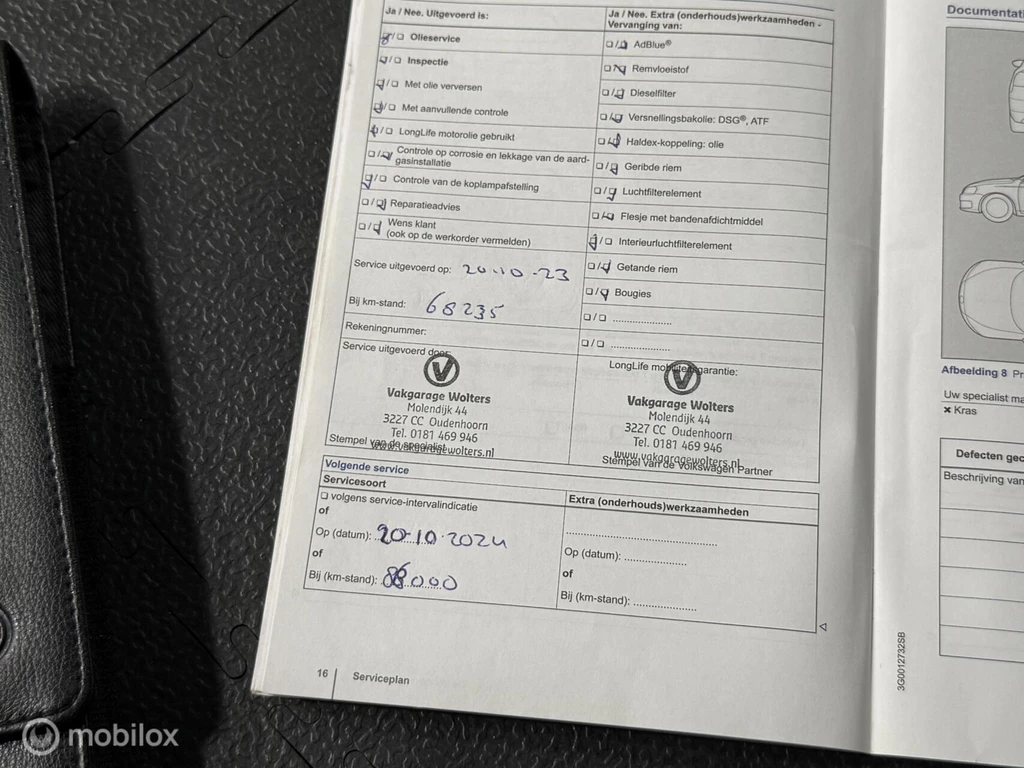 Ja / Nee. Uitgevoerd is:
☑/☐ Olieservice
☑/☐ Inspectie
☑/☐ Met olie verversen
☑/☐ Met aanvullende controle
☑/☐ LongLife motorolie gebruikt
☐/☑ Controle op corrosie en lekkage van de aard-
gasinstallatie
☑/☐ Controle van de koplampafstelling
☐/☑ Reparatieadvies
☐/☑ Wens klant
(ook op de werkorder vermelden)
Service uitgevoerd op: 20-10-23
Bij km-stand: 68235
Rekeningnummer:
Service uitgevoerd door:
Vakgarage Wolters
Molendijk 44
3227 CC Oudenhoorn
Tel. 0181 469 946
www.vakgaragewolters.nl
Stempel van de specialist
Ja / Nee. Extra (onderhouds)werkzaamheden -
Vervanging van:
☐/☑ AdBlue®
☐/☑ Remvloeistof
☐/☑ Dieselfilter
☐/☑ Versnellingsbakolie: DSG®, ATF
☐/☑ Haldex-koppeling: olie
☐/☑ Geribde riem
☐/☑ Luchtfilterelement
☐/☑ Flesje met bandenafdichtmiddel
☑/☐ Interieurluchtfilterelement
☐/☑ Getande riem
☐/☑ Bougies
☐/☐ .....................
☐/☐ .....................
LongLife mobiliteitsgarantie:
Vakgarage Wolters
Molendijk 44
3227 CC Oudenhoorn
Tel. 0181 469 946
www.vakgaragewolters.nl
Stempel van de Volkswagen Partner
Volgende service
Servicesoort
☐ volgens service-intervalindicatie
of
Op (datum): 20-10-2024
of
Bij (km-stand): 88000
Extra (onderhouds)werkzaamheden
Op (datum): .....................
of
Bij (km-stand): .....................
16
Serviceplan
3G0012732SB
Afbeelding 8
Uw specialist
× Kras
Defecten
Beschrijving
mobilox